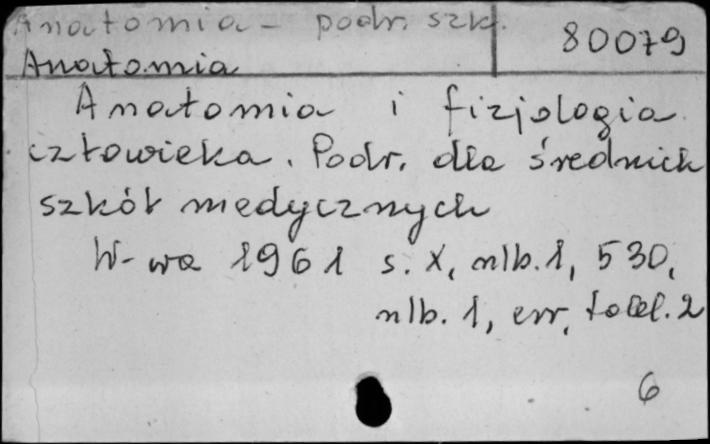 Anatomia - podr. szk.
80079
Anatomia
Anatomia i fizjologia
człowieka. Podr. dla średnich
szkół medycznych
W-wa 1961 s. X, nlb. 1, 530,
nlb. 1, err, tabl. 2
6